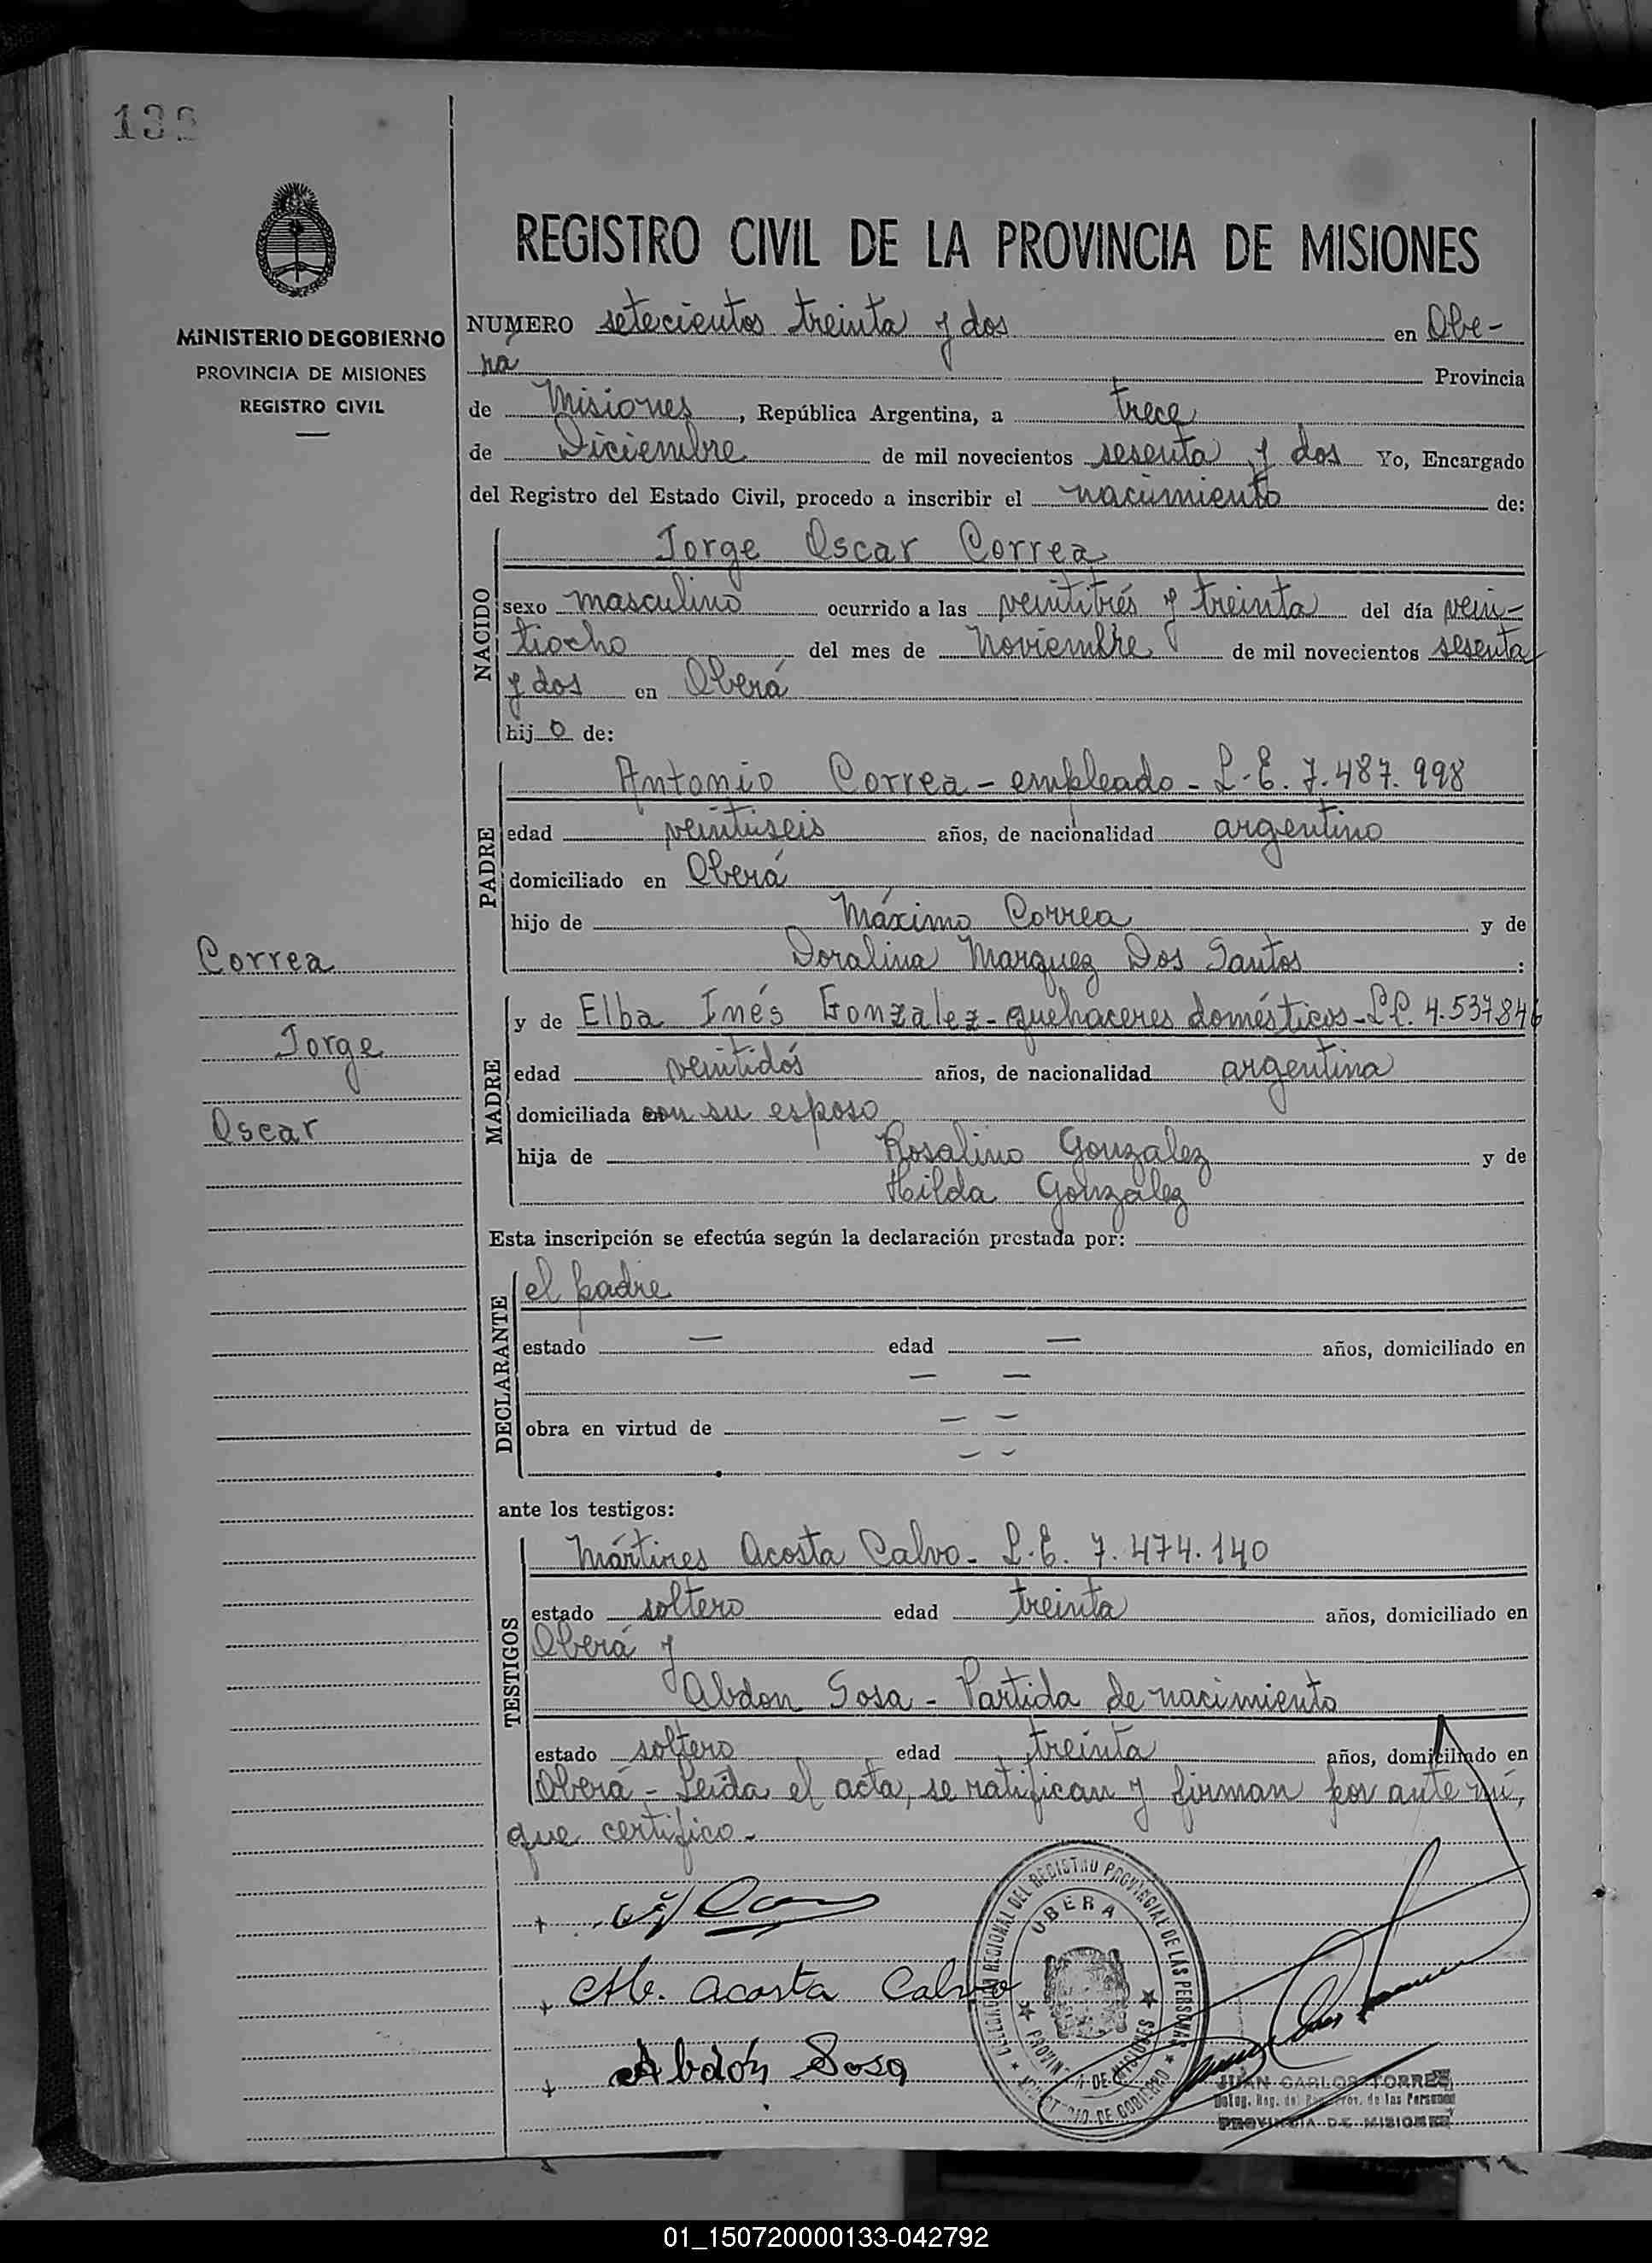 MINISTERIO DE GOBIERNO
PROVINCIA DE MISIONES
REGISTRO CIVIL
Correa
Jorge
Oscar
REGISTRO CIVIL DE LA PROVINCIA DE MISIONES
NUMERO setecientos treinta y dos en Obe-
ra Provincia
de Misiones, República Argentina, a trece
de Diciembre de mil novecientos sesenta y dos Yo, Encargado
del Registro del Estado Civil, procedo a inscribir el nacimiento de:
NACIDO
Jorge Oscar Correa
sexo masculino ocurrido a las veintitrés y treinta del día vein-
tiocho del mes de Noviembre de mil novecientos sesenta
y dos en Oberá
hijo de:
PADRE
Antonio Correa - empleado - L.E. 7.487.998
edad veintiseis años, de nacionalidad argentino
domiciliado en Oberá
hijo de Máximo Correa y de
Doralina Marquez Dos Santos :
MADRE
y de Elba Inés Gonzalez - quehaceres domésticos - L.C. 4.537.846
edad veintidós años, de nacionalidad argentina
domiciliada con su esposo
hija de Rosalino Gonzalez y de
Hilda Gonzalez
Esta inscripción se efectúa según la declaración prestada por:
DECLARANTE
el padre
estado — edad — años, domiciliado en
— —
obra en virtud de — —
— —
ante los testigos:
TESTIGOS
Mártires Acosta Calvo - L.E. 7.474.140
estado soltero edad treinta años, domiciliado en
Oberá y
Abdon Sosa - Partida de nacimiento
estado soltero edad treinta años, domiciliado en
Oberá - Leída el acta, se ratifican y firman por ante mí,
que certifico -
M. Acosta Calvo
Abdón Sosa
DELEGACION REGIONAL DEL REGISTRO PROVINCIAL DE LAS PERSONAS
OBERA
PROVINCIA DE MISIONES
MINISTERIO DE GOBIERNO
JUAN CARLOS TORRES
Deleg. Reg. del Reg. Prov. de las Personas
PROVINCIA DE MISIONES
01_150720000133-042792